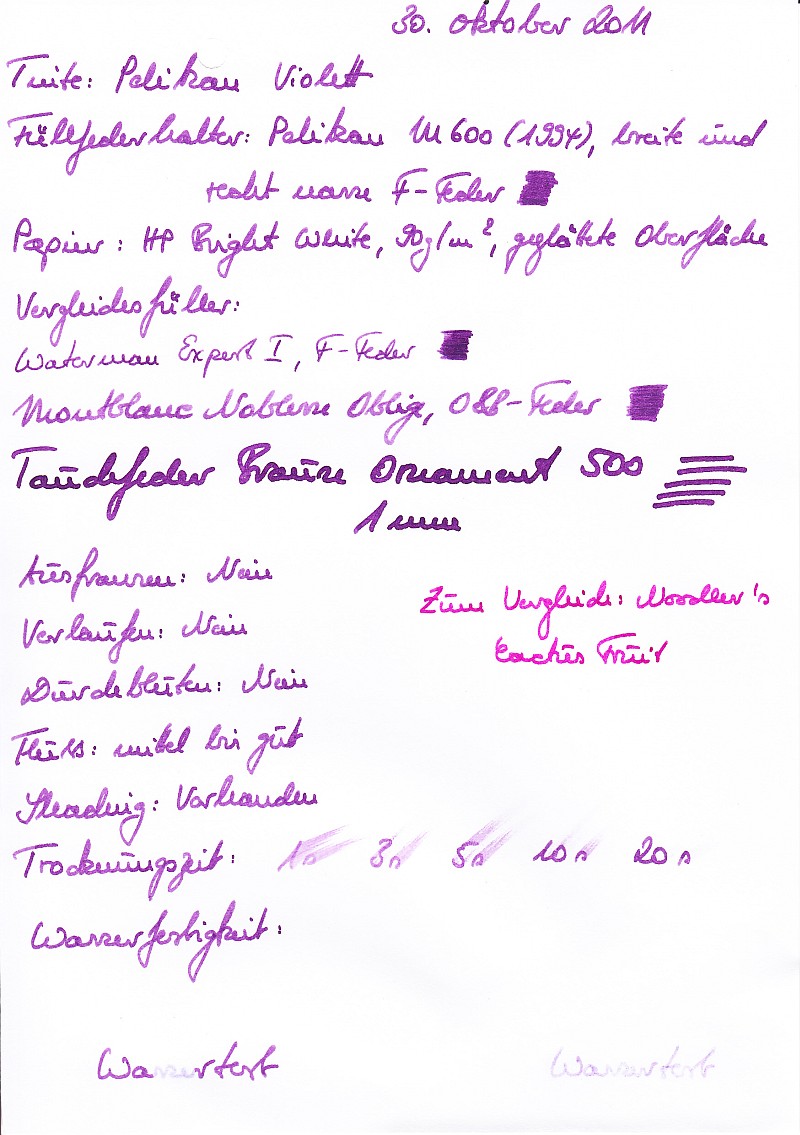 30. Oktober 2011
Tinte: Pelikan Violett
Füllfederhalter: Pelikan M600 (1994), breite und
recht nasse F-Feder
Papier: HP Bright White, 90g/m², geglättete Oberfläche
Vergleichsfüller:
Waterman Expert I, F-Feder
Montblanc Noblesse Oblige, OBB-Feder
Tauchfeder Brause Ornament 500
1 mm
Ausfransen: Nein
Verlaufen: Nein
Durchbluten: Nein
Fluss: mittel bis gut
Shading: Vorhanden
Trocknungszeit: 1s 3s 5s 10s 20s
Wasserfestigkeit:
Zum Vergleich: Noodler's
Cactus Fruit
Wassertest Wassertest